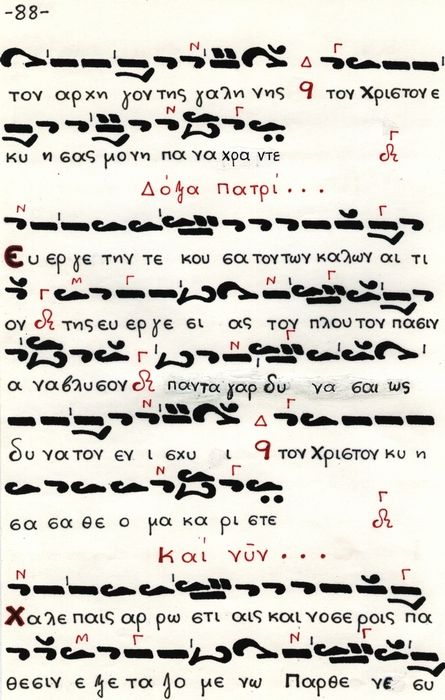 -88-
τον αρχη γον της γαλη νης τον Χριστον ε
κυ η σας μο νη πα να χρα ντε
Δόξα πατρί...
Ευ ερ γε την τε κου σα τον των καλων αι τι
ον της ευ ερ γε σι ας τον πλου τον πασιν
α ναβλυσον παντα γαρ δυ να σαι ως
δυ νατον εν ι σχυ ι τον Χριστον κυ η
σα σα θε ο μα κα ρι στε
Καί νῦν...
Χαλε παις αρ ρω στι αις και νοσε ροις πα
θεσιν ε ξε τα ζο με νω Παρθε νε συ